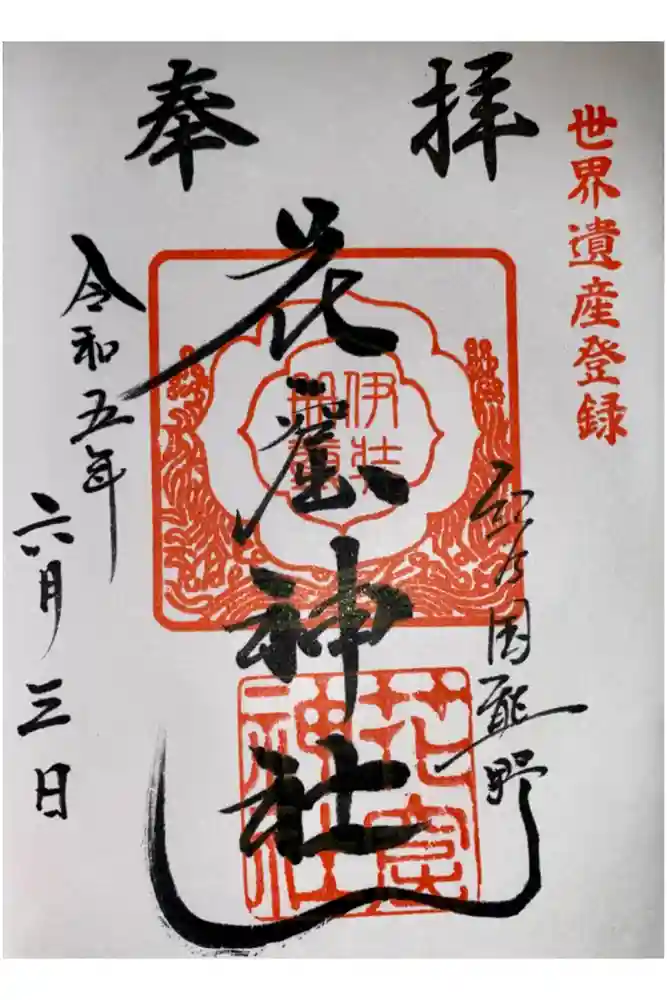 奉拝
世界遺産登録
紀乃国熊野
花窟神社
伊弉
冊尊
花窟
神社
令和五年
六月三日